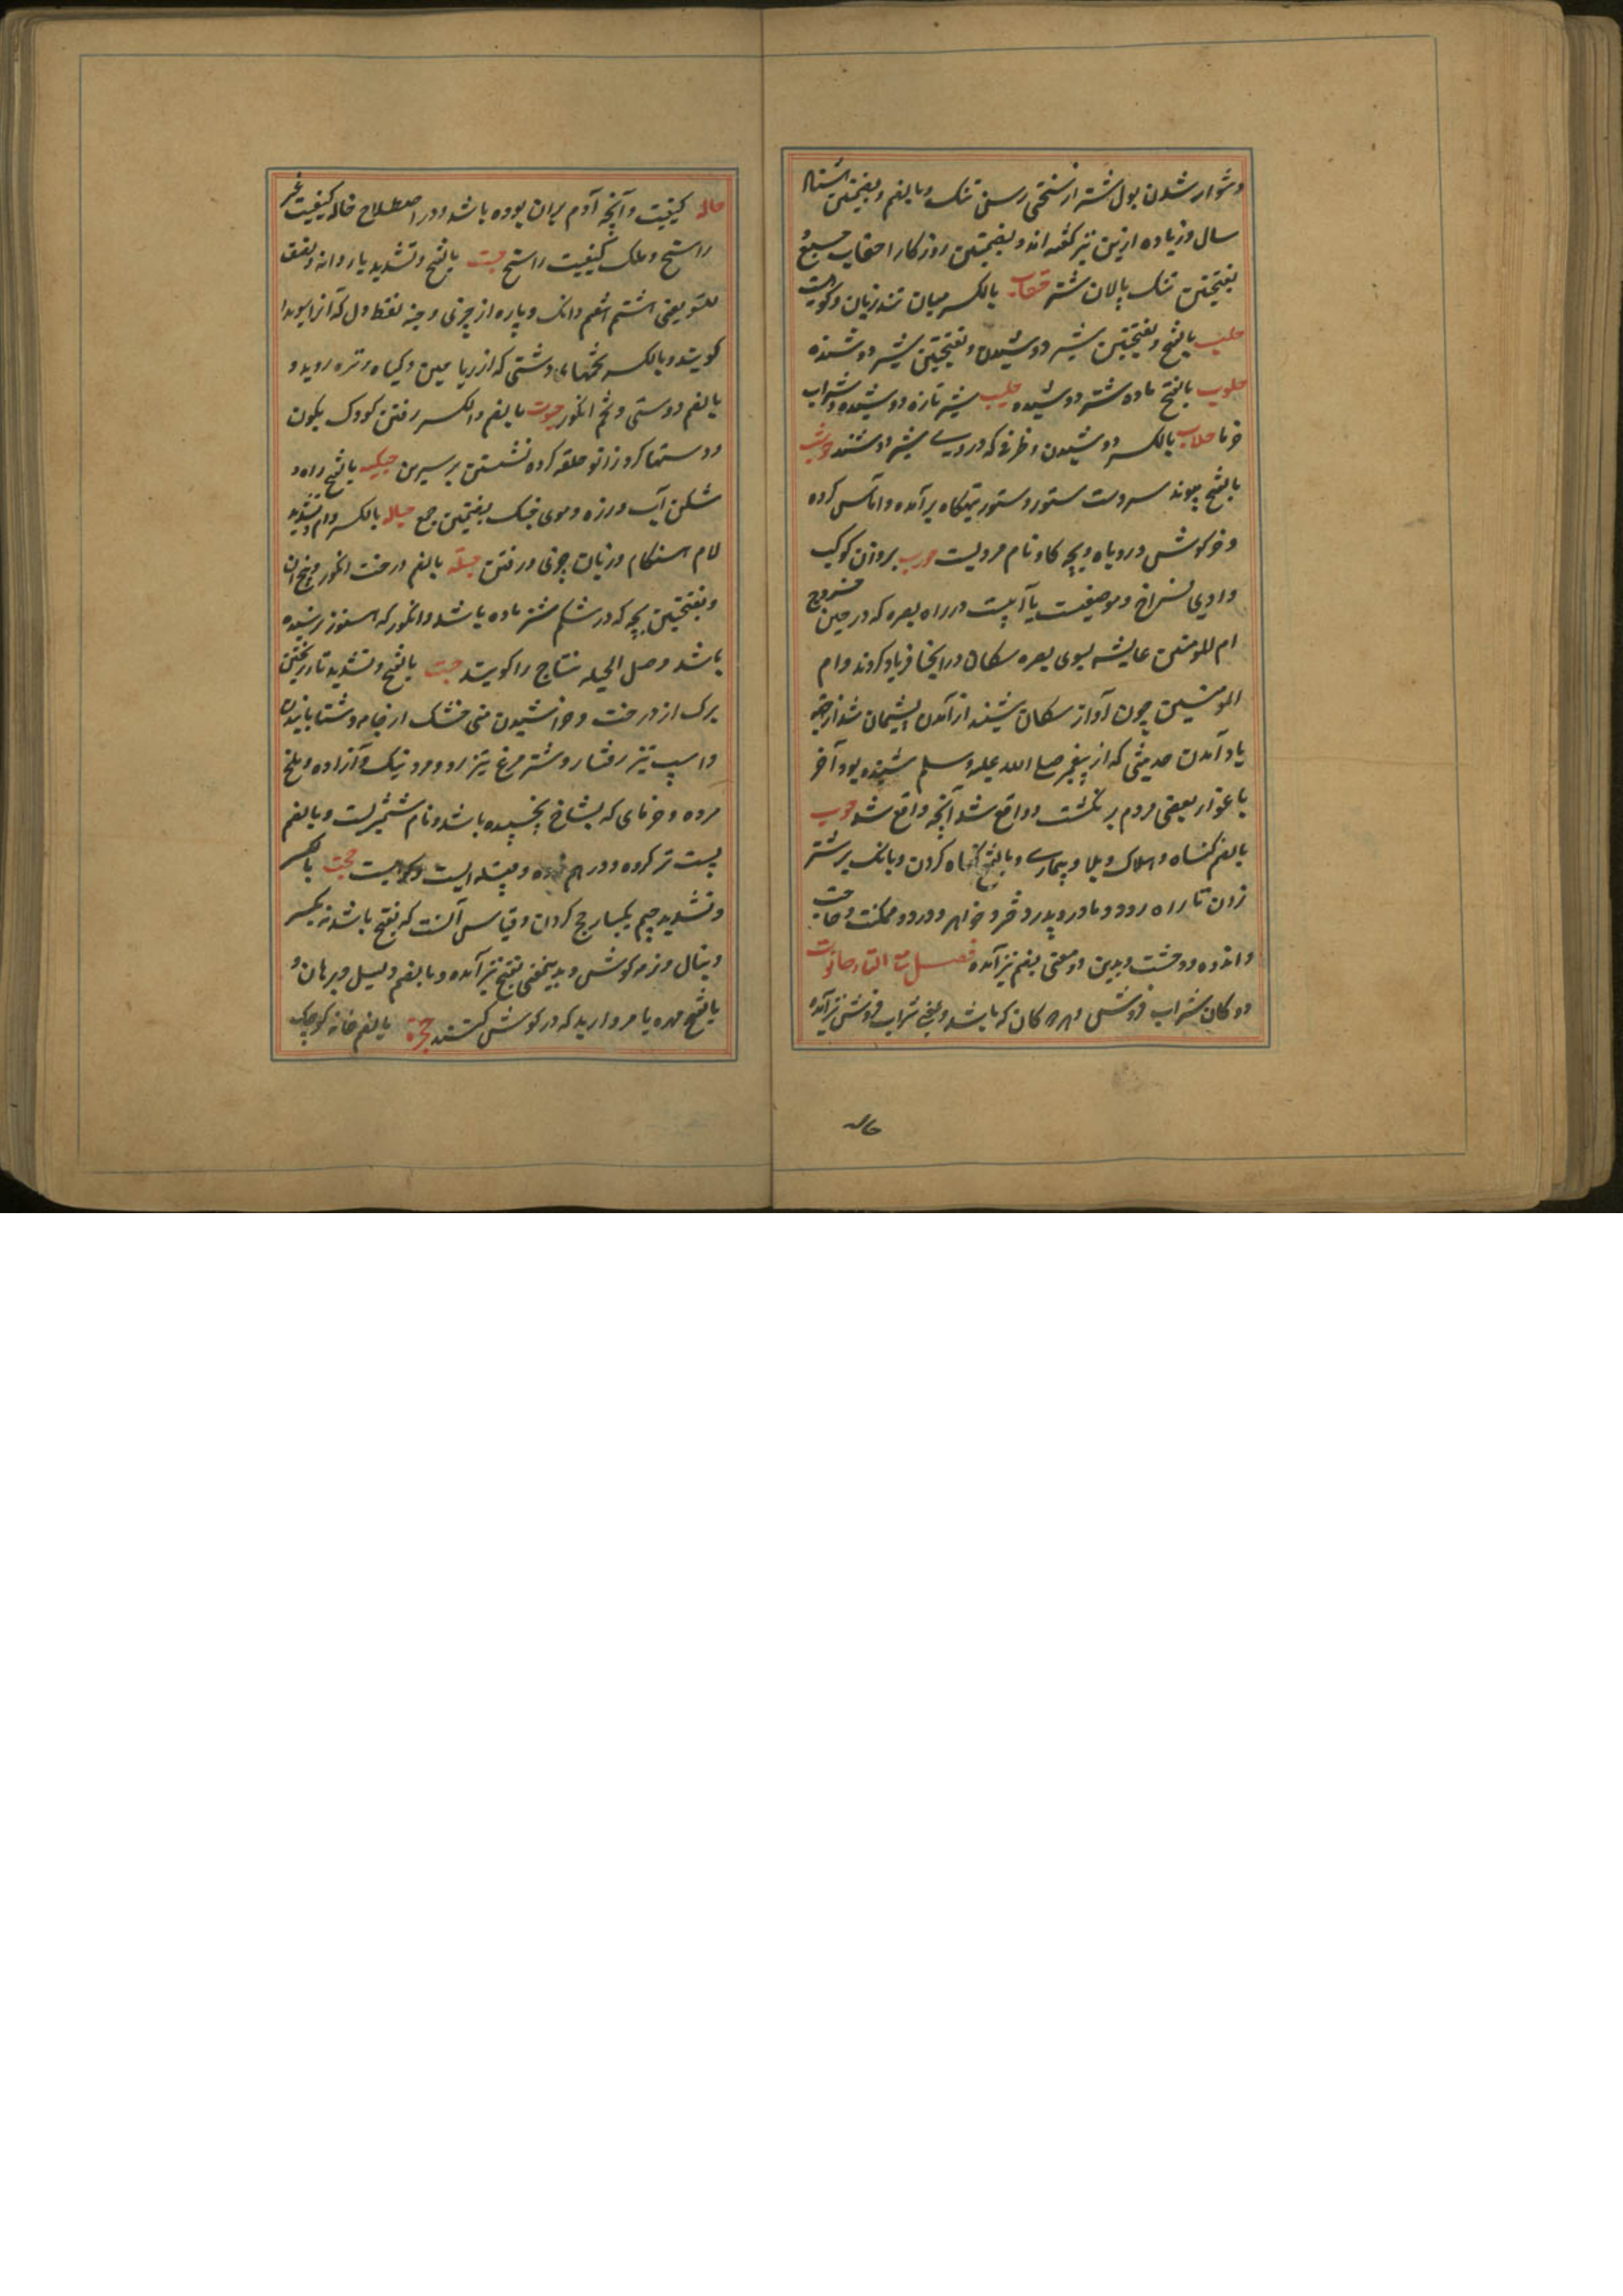 دشوار شدن بول شتر از سختی رسن تنک و بالضم و بضمتین هشتاد
سال و زیاده ازین نیز گفته اند و بضمتین روزکار احقاب جمع
بفتحتین تنک پالان شتر حقاب بالکسر میان بند زنان و کودک
حلب بالفتح و بفتحتین شیر دوشیدن و بفتحتین شیر دوشنده
حلوب بالفتح ماده شتر دوشیده حلیب شیر تازه دوشیده و شراب
خرما حلاب بالکسر دوشیدن و ظرفی که در وی شیر دوشند حوشب
بالفتح پیوند سر دست ستور و ستور تهیکاه برآمده و آماس کرده
و خرکوش و روباه و بچه کاو و نام مردیست حوب بر وزن کوکب
وادی فراخ و موضعیست با آبیست در راه بصره که در حین خروج
ام المومنین عایشه بسوی بصره سکان در اینجا فریاد کردند و ام
المومنین چون آواز سکان شنید از آمدن پشیمان شد از جهة
یاد آمدن حدیثی که از پیغمبر صلی الله علیه وسلم شنیده بود آخر
باغوار بعضی مردم برنگشت و واقع شد آنچه واقع شد حوب
بالضم گناه و هلاک و بلا و بیماری و بالفتح گناه کردن و بانک بر شتر
زدن تا راه رود و مادر و پدر و دختر و خواهر و درد و مسکنت و حاجت
و اندوه و وحشت و بدین دو معنی بضم نیز آمده فصل مع التاء حانوت
دوکان شراب فروش و هر دکان که باشد و بمعنی شراب فروش نیز آمده
حاله
حاله کیفیت و آنچه آدم بران بوده باشد و در اصطلاح حاله کیفیت غیر
راسخ و ملک کیفیت راسخ حبت بالفتح و تشدید با و دانه و نصف
للتسو یعنی هشتم دانک و پاره از چیزی و حبة نقطه دل که آنرا سویدا
کویند و بالکسر تخمهای دشتی که از ریاحین و کیاه و تره روید و
بالضم دوستی و تخم انگور حبوت بالضم و الکسر رفتن کودک بکون
و دستها کرد زانو حلقه کرده نشستن بر سرین حبکه بالفتح راه و
شکن آب و زره و موی حبک بضمتین جمع حباله بالکسر دام و تشدید
لام هنکام و زمان چیزی و رفتن حبله بالضم درخت انگور و بیخ آن
و بفتحتین بچه که در شکم شتر ماده باشد و انگور که هنوز نرسیده
باشد و حبل الحبله نتاج را کویند حت بالفتح و تشدید تا ریختن
برک از درخت و خراشیدن منی خشک از جامه و شتابانیدن
و اسپ تیز رفتار و شتر مرغ تیز رو و مرد نیک و آزاده و ملخ
مرده و خرمای که بشاخ نچسپیده باشد و نام شمشیریست و بالضم
پست تر کرده و درهم زده و قبیله ایست و کوهیست حجت بالکسر
و تشدید جیم یکبار حج کردن و قیاس آنست که بفتح باشد نه بکسر
و سال و نرمه کوش و بدینمعنی بفتح نیز آمده و بالضم دلیل و برهان و
بالفتح مهره یا مروارید که در کوش کنند حجرة بالضم خانه کوچک